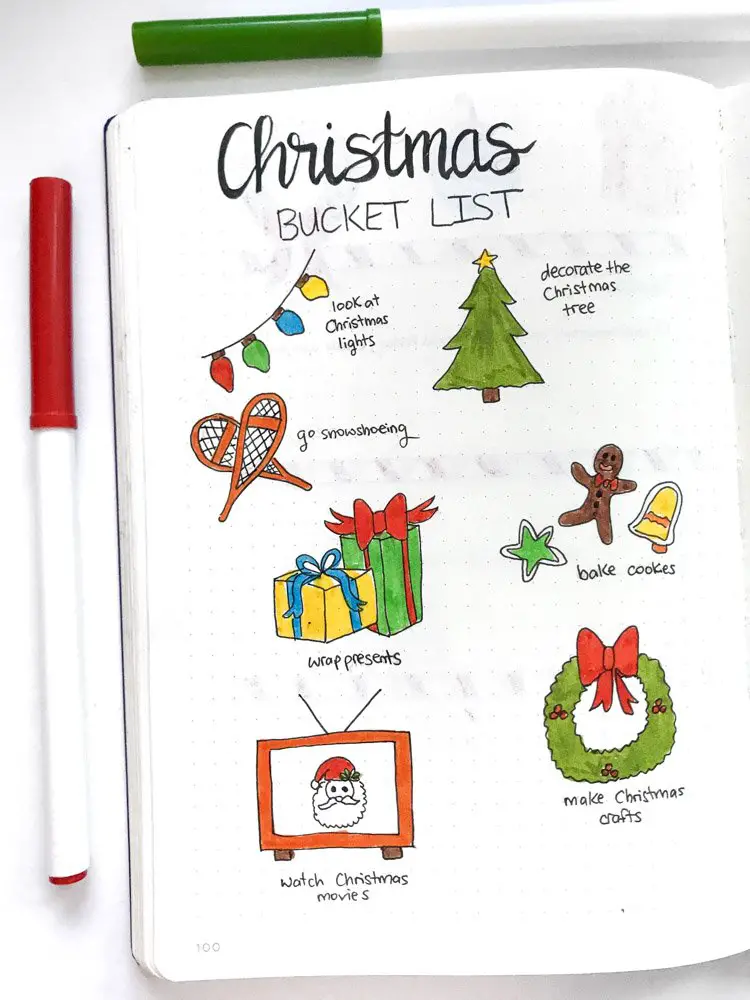 Christmas
BUCKET LIST
look at
Christmas
lights
decorate the
Christmas
tree
go snowshoeing
bake cookes
wrap presents
make Christmas
crafts
watch Christmas
movies
100